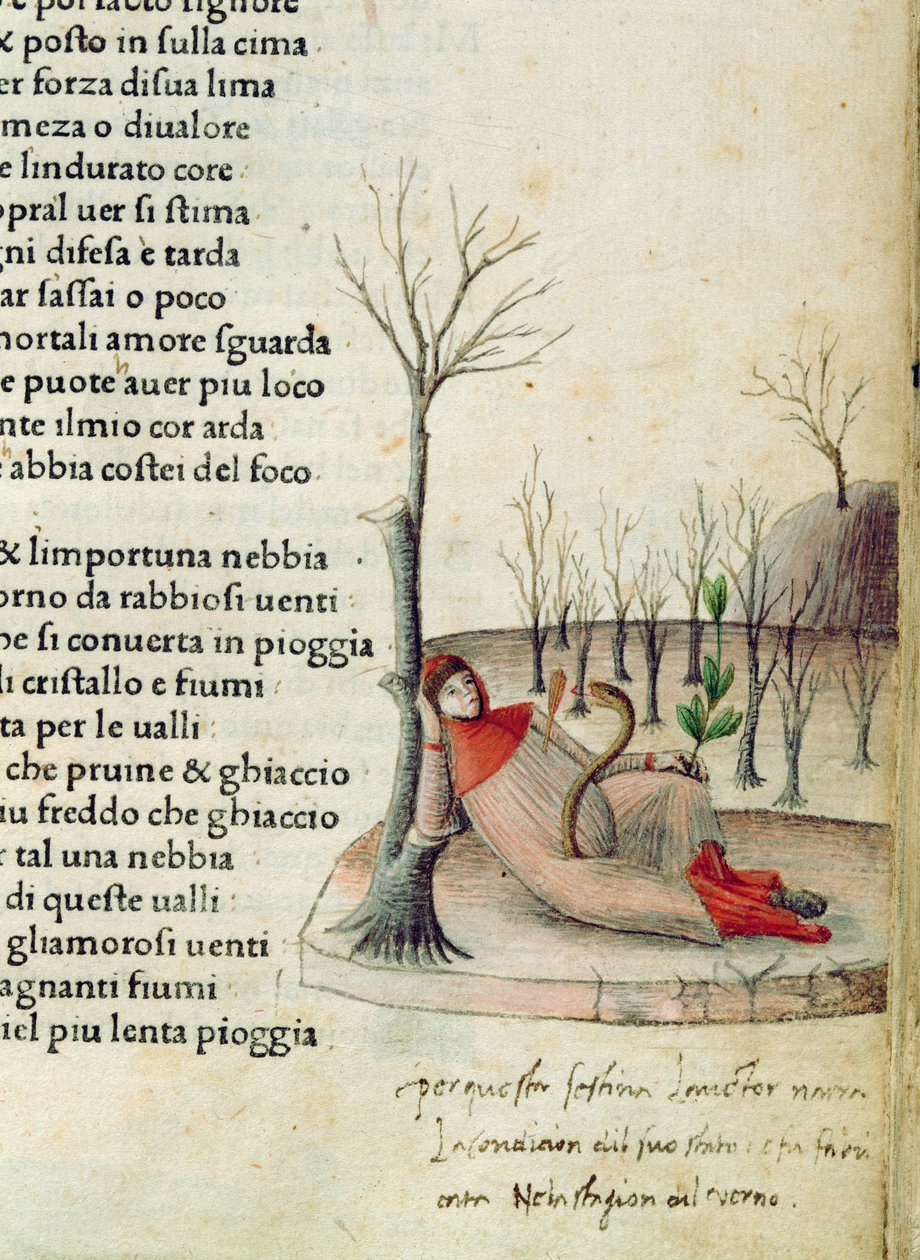 o e poi facto signore
& posto in sulla cima
er forza disua lima
meza o diualore
e lindurato core
opral uer si stima
gni difesa è tarda
ar sassai o poco
mortali amore sguarda
e puote h auer piu loco
nte ilmio cor arda
h e abbia costei del foco
& limportuna nebbia
orno da rabbiosi uenti
be si conuerta in pioggia
li cristallo e fiumi
ta per le ualli
che pruine & ghiaccio
iu freddo che ghiaccio
r tal una nebbia
di queste ualli
gliamorosi uenti
agnanti fiumi
iel piu lenta pioggia
per questa sestina Lauctor narra
La condicion dil suo stato e fu fabri
cata Ne la stagion dil verno.